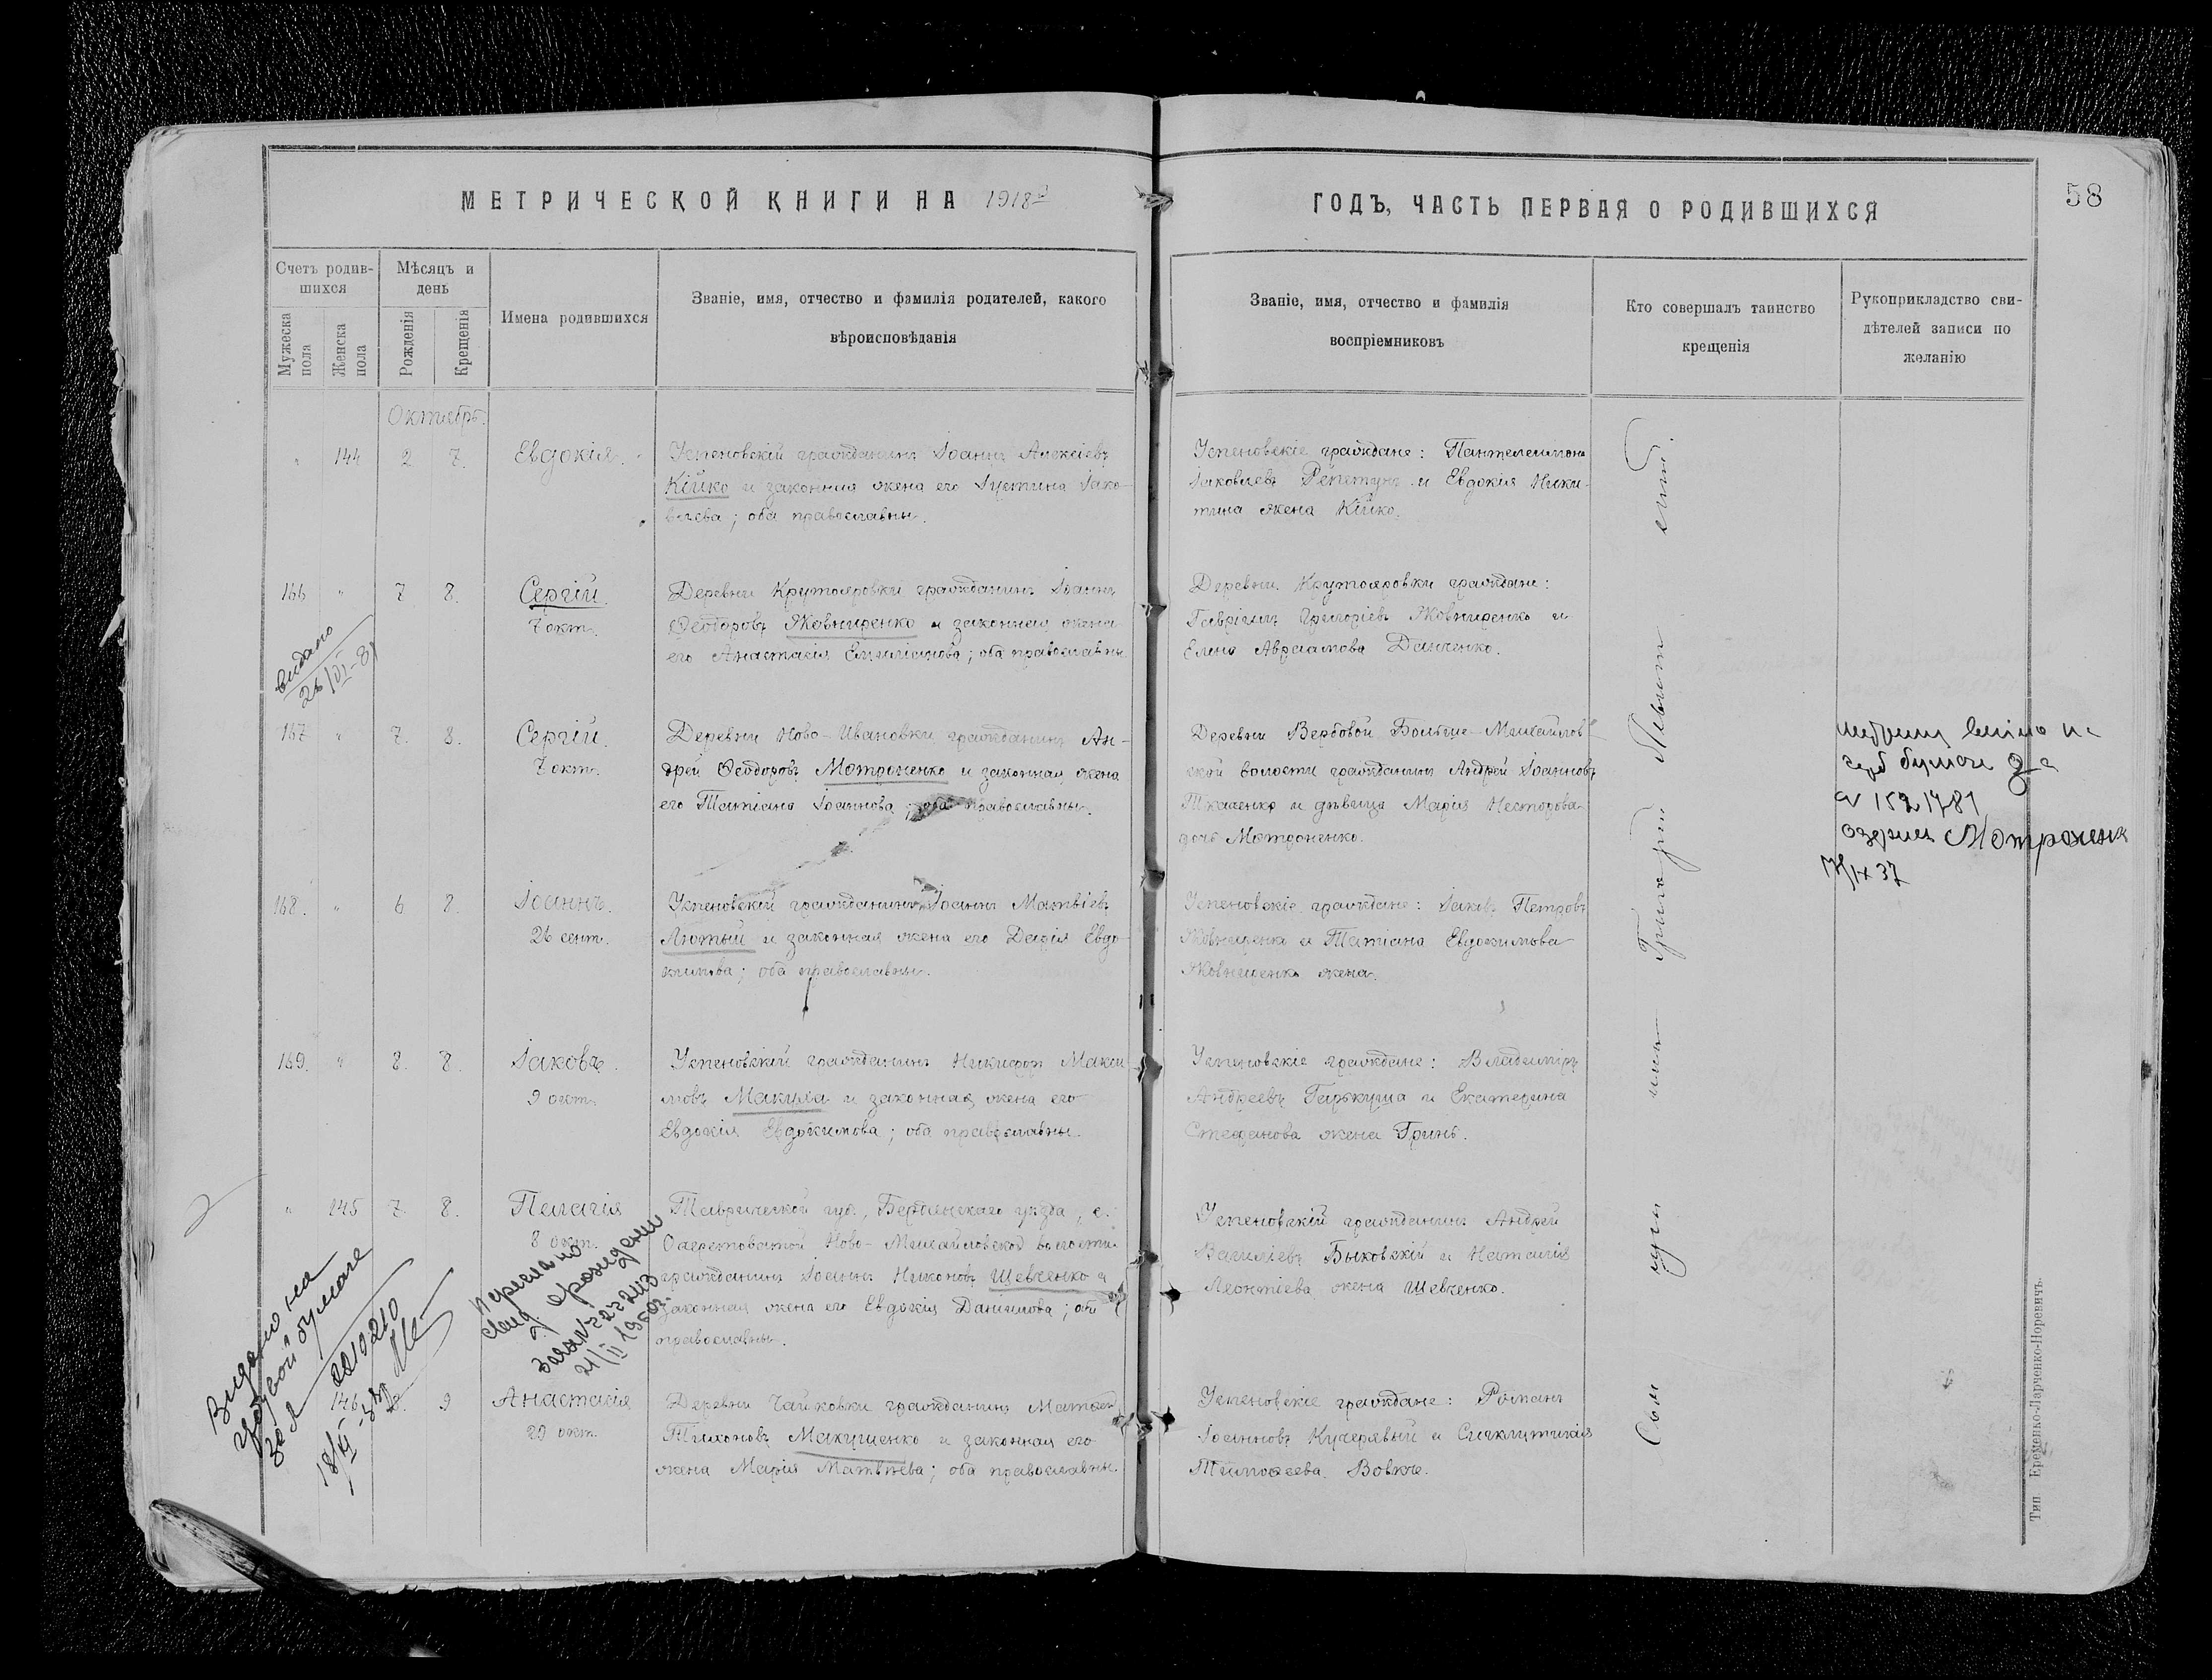 МЕТРИЧЕСКОЙ КНИГИ НА 1918й
ГОДЪ, ЧАСТЬ ПЕРВАЯ О РОДИВШИХСЯ
58
Счетъ родив-
шихся
Мужеска
пола
Женска
пола
Мѣсяцъ и
день
Рожденія
Крещенія
Имена родившихся
Званіе, имя, отчество и фамилія родителей, какого
вѣроисповѣданія
Званіе, имя, отчество и фамилія
воспріемниковъ
Кто совершалъ таинство
крещенія
Рукоприкладство сви-
дѣтелей записи по
желанію
Октябрь.
" 144 2 7. Евдокія.
Успеновскій гражданинъ Іоаннъ Алексіевъ
Кійко и законная жена его Іустина Іако-
влева; оба православны.
Успеновскіе граждане: Пантелеимонъ
Іаковлевъ Репетунъ и Евдокія Ники-
тина жена Кійко.
166 " 7 8. Сергій.
7 окт.
Деревни Крутояровки гражданинъ Іоаннъ
Ѳеодоровъ Жовниренко и законная жена
его Анастасія Емиліанова; оба православны
Деревни Крутояровки граждане:
Гавріилъ Григоріевъ Жовниренко и
Елена Авраамова Данченко.
видано
26/VI-81
167 " 7. 8. Сергій.
7 окт.
Деревни Ново-Ивановки гражданинъ Ан-
дрей Ѳеодоровъ Мотроненко и законная жена
его Татіана Іоаннова; оба православны.
Деревни Вербовой Больше-Михайлов-
ской волости гражданинъ Андрей Іоанновъ
Ткаченко и дѣвица Марія Несторова
дочь Мотроненко.
№ 1521481
Мотроненк
168. " 6 8. Іоаннъ.
26 сент.
Успеновскій гражданинъ Іоаннъ Матвіевъ
Лютый и законная жена его Дарія Евдо-
кимова; оба православны.
Успеновскіе граждане: Іаковъ Петровъ
Жовниренко и Татіана Евдокимова
Жовниренко жена.
169. " 8. 8. Іаковъ.
9 окт.
Успеновскій гражданинъ Никифоръ Макси-
мовъ Макуха и законная жена его
Евдокія Евдокимова; оба православны.
Успеновскіе граждане: Владиміръ
Андреевъ Гаркуша и Екатерина
Стефанова жена Гринь.
" 145 7. 8. Пелагія
8 окт.
Таврической губ., Бердянскаго уѣзда, с.
Ново-Михайловской волости
гражданинъ Іоаннъ Никоновъ Шевченко и
законная жена его Евдокія Даніилова; оба
православны.
Успеновскій гражданинъ Андрей
Василіевъ Быковскій и Наталія
Леонтіева жена Шевченко.
Видано на
гербовой бумаге
146 8. 9 Анастасія
29 окт.
Деревни Чайковки гражданинъ Матвей
Тихоновъ Макушенко и законная его
жена Марія Матвѣева; оба православны.
Успеновскіе граждане: Романъ
Іоанновъ Кучерявый и Синклитикія
Тимоѳеева Вовкъ.
Григорій
Тип Еременко-Ларченко-Норевичъ.